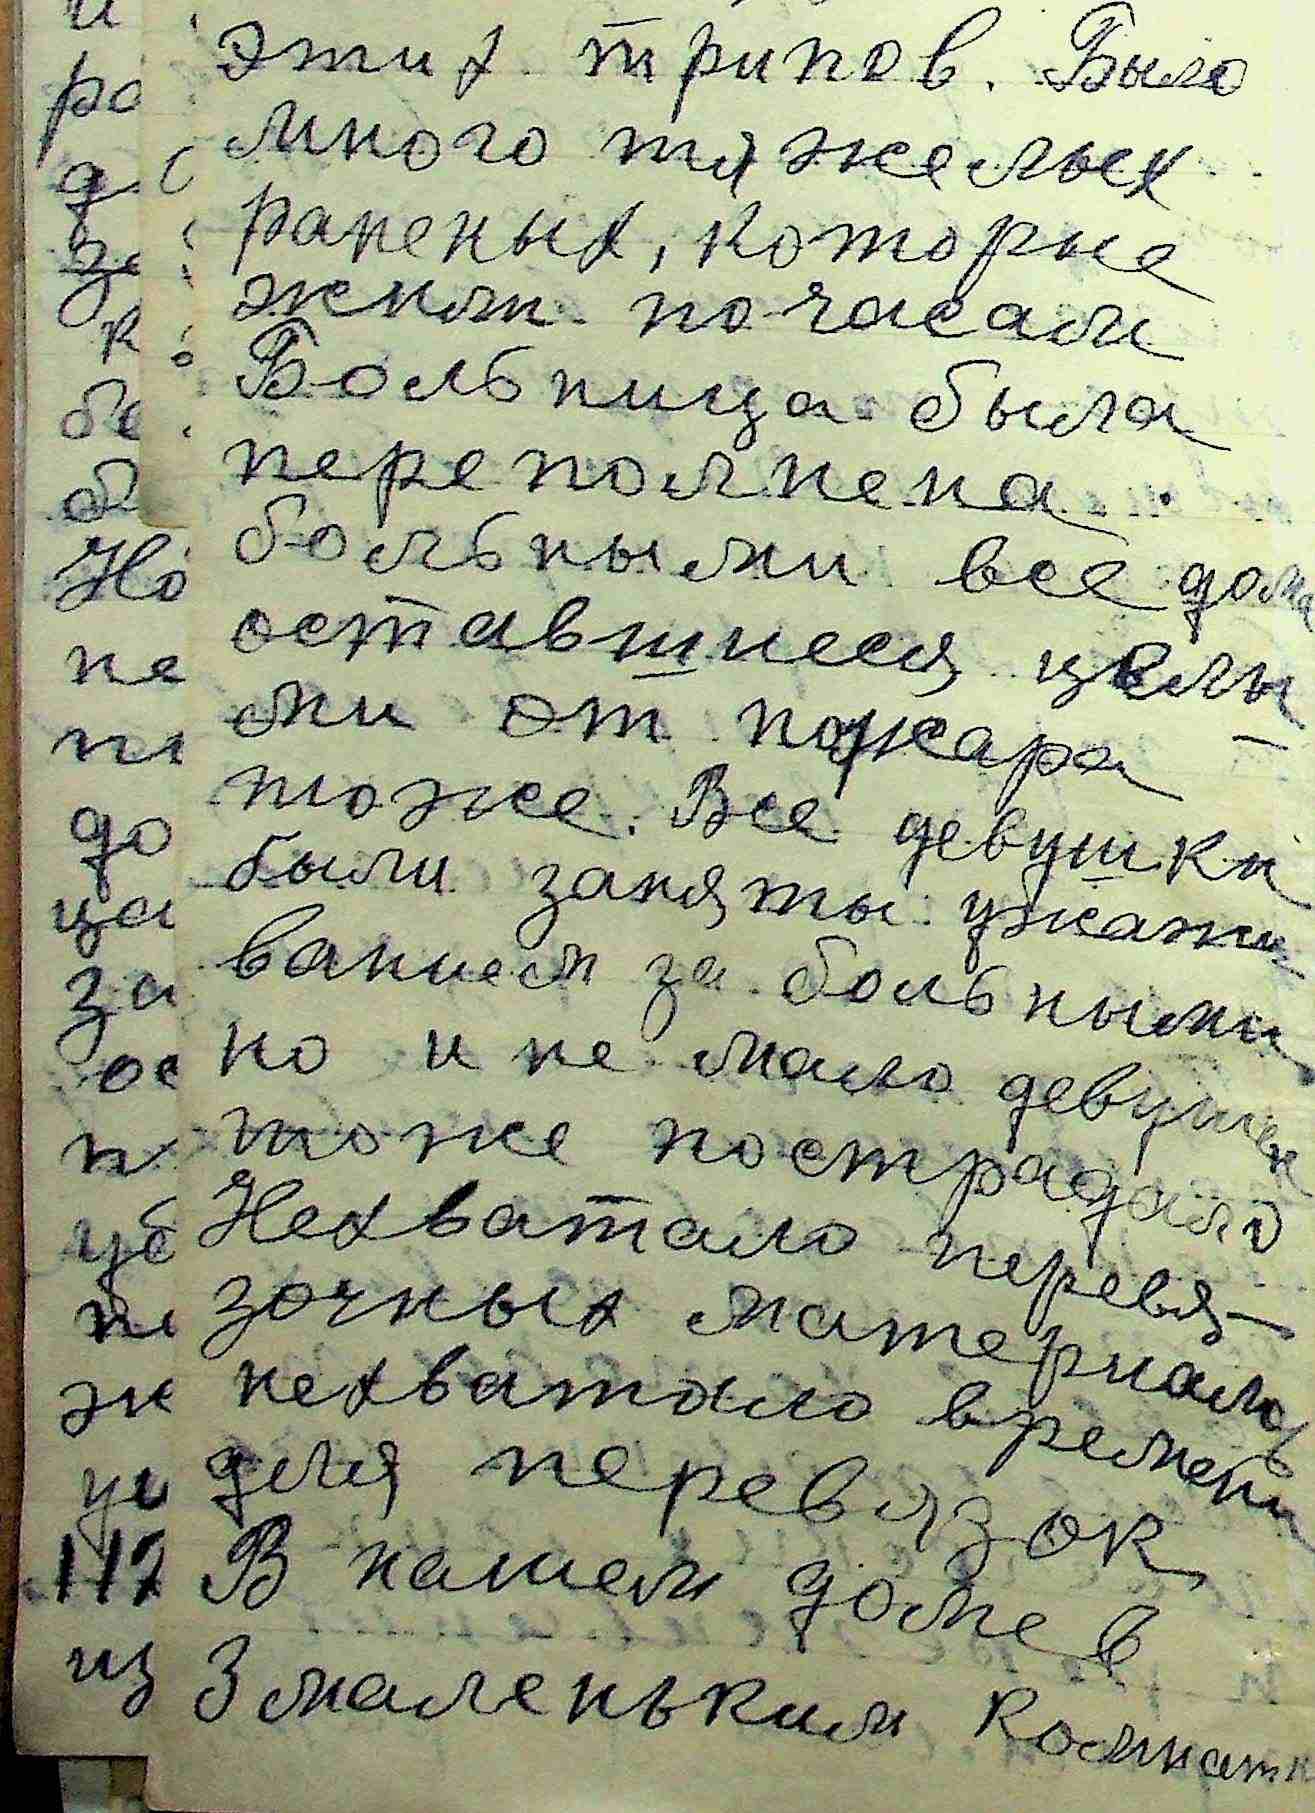 этих трипов. Было
много тяжелых
раненых, которые
жили по часам
Больница была
переполнена.
больными все дома
оставшиеся целы
ми от пожара
тоже. Все девушки
были заняты ухажи
ванием за больными
но и не мало девушек
тоже пострадало
Нехватало перевя-
зочных материалов
нехватало времени
для перевязок
В нашем доме в
3 маленьким комнатк